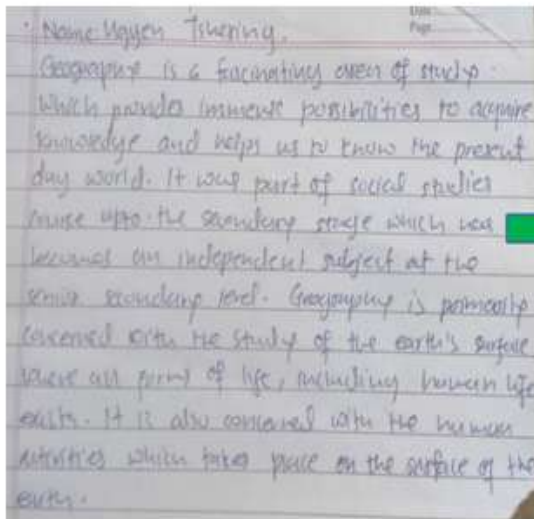 Date
Page
Name Ugyen Tshering.
Geography is a facinating area of study.
Which provides immense possibilities to acquire
knowledge and helps us to know the present
day world. It was part of social studies
course upto the secondary stage which now
becomes an independent subject at the
senior secondary level. Geography is primarily
concerned with the study of the earth's surface
where all forms of life, including human life
exists. It is also concerned with the human
activities which takes place on the surface of the
earth.